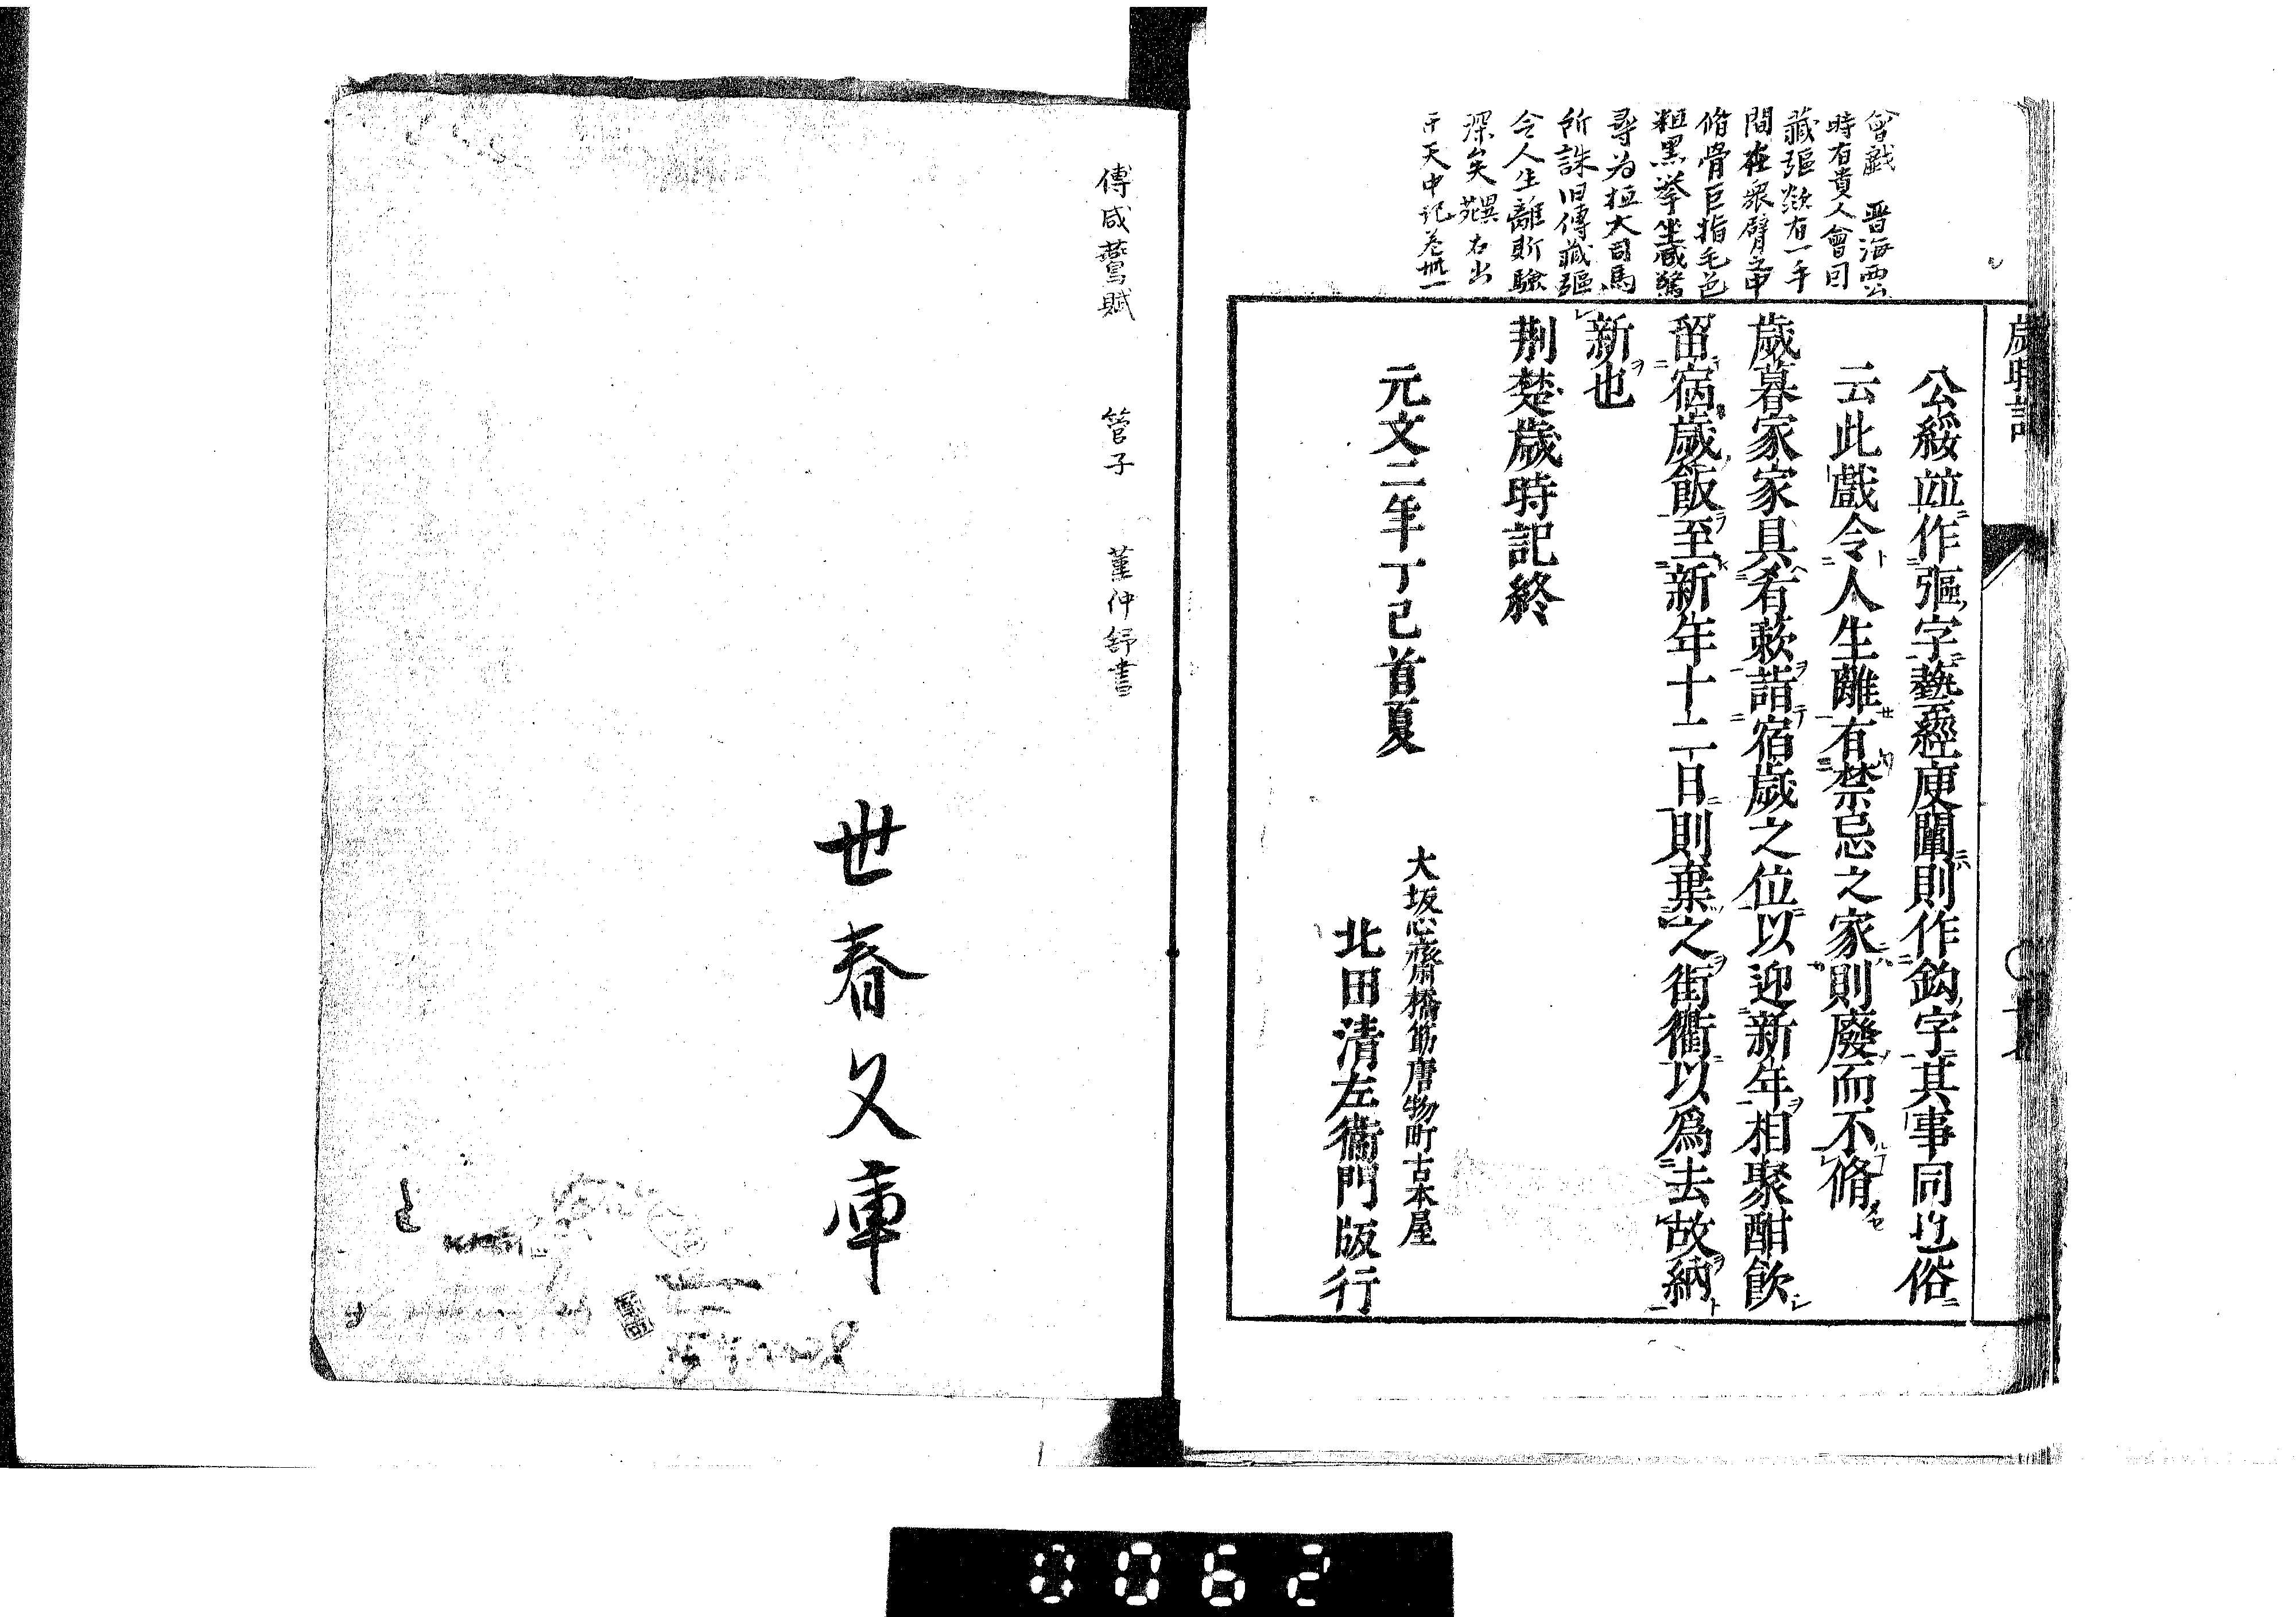 歳時記
曾戯 晋海西公
時有貴人會同
藏彄欻有一手
間在衆臂之中
脩骨巨指毛色
粗黒挙坐咸驚
尋為桓大司馬
所誅旧傳藏彄
令人生離斯驗
深矣 異苑 右出
于天中记卷卅一
公綏竝作彄字藝經庾闡則作鈎字其事同也俗
云此戲令人生離有禁忌之家則廢而不脩
歳暮家家具肴蔌詣宿歳之位以迎新年相聚酣飲
留宿歳飯至新年十二日則棄之街衢以爲去故納
新也
荆楚歳時記終
元文二年丁巳首夏
大坂心齋橋筋唐物町古本屋
北田清左衞門版行
傅咸鷰賦 管子 董仲舒書
世春文庫
0062